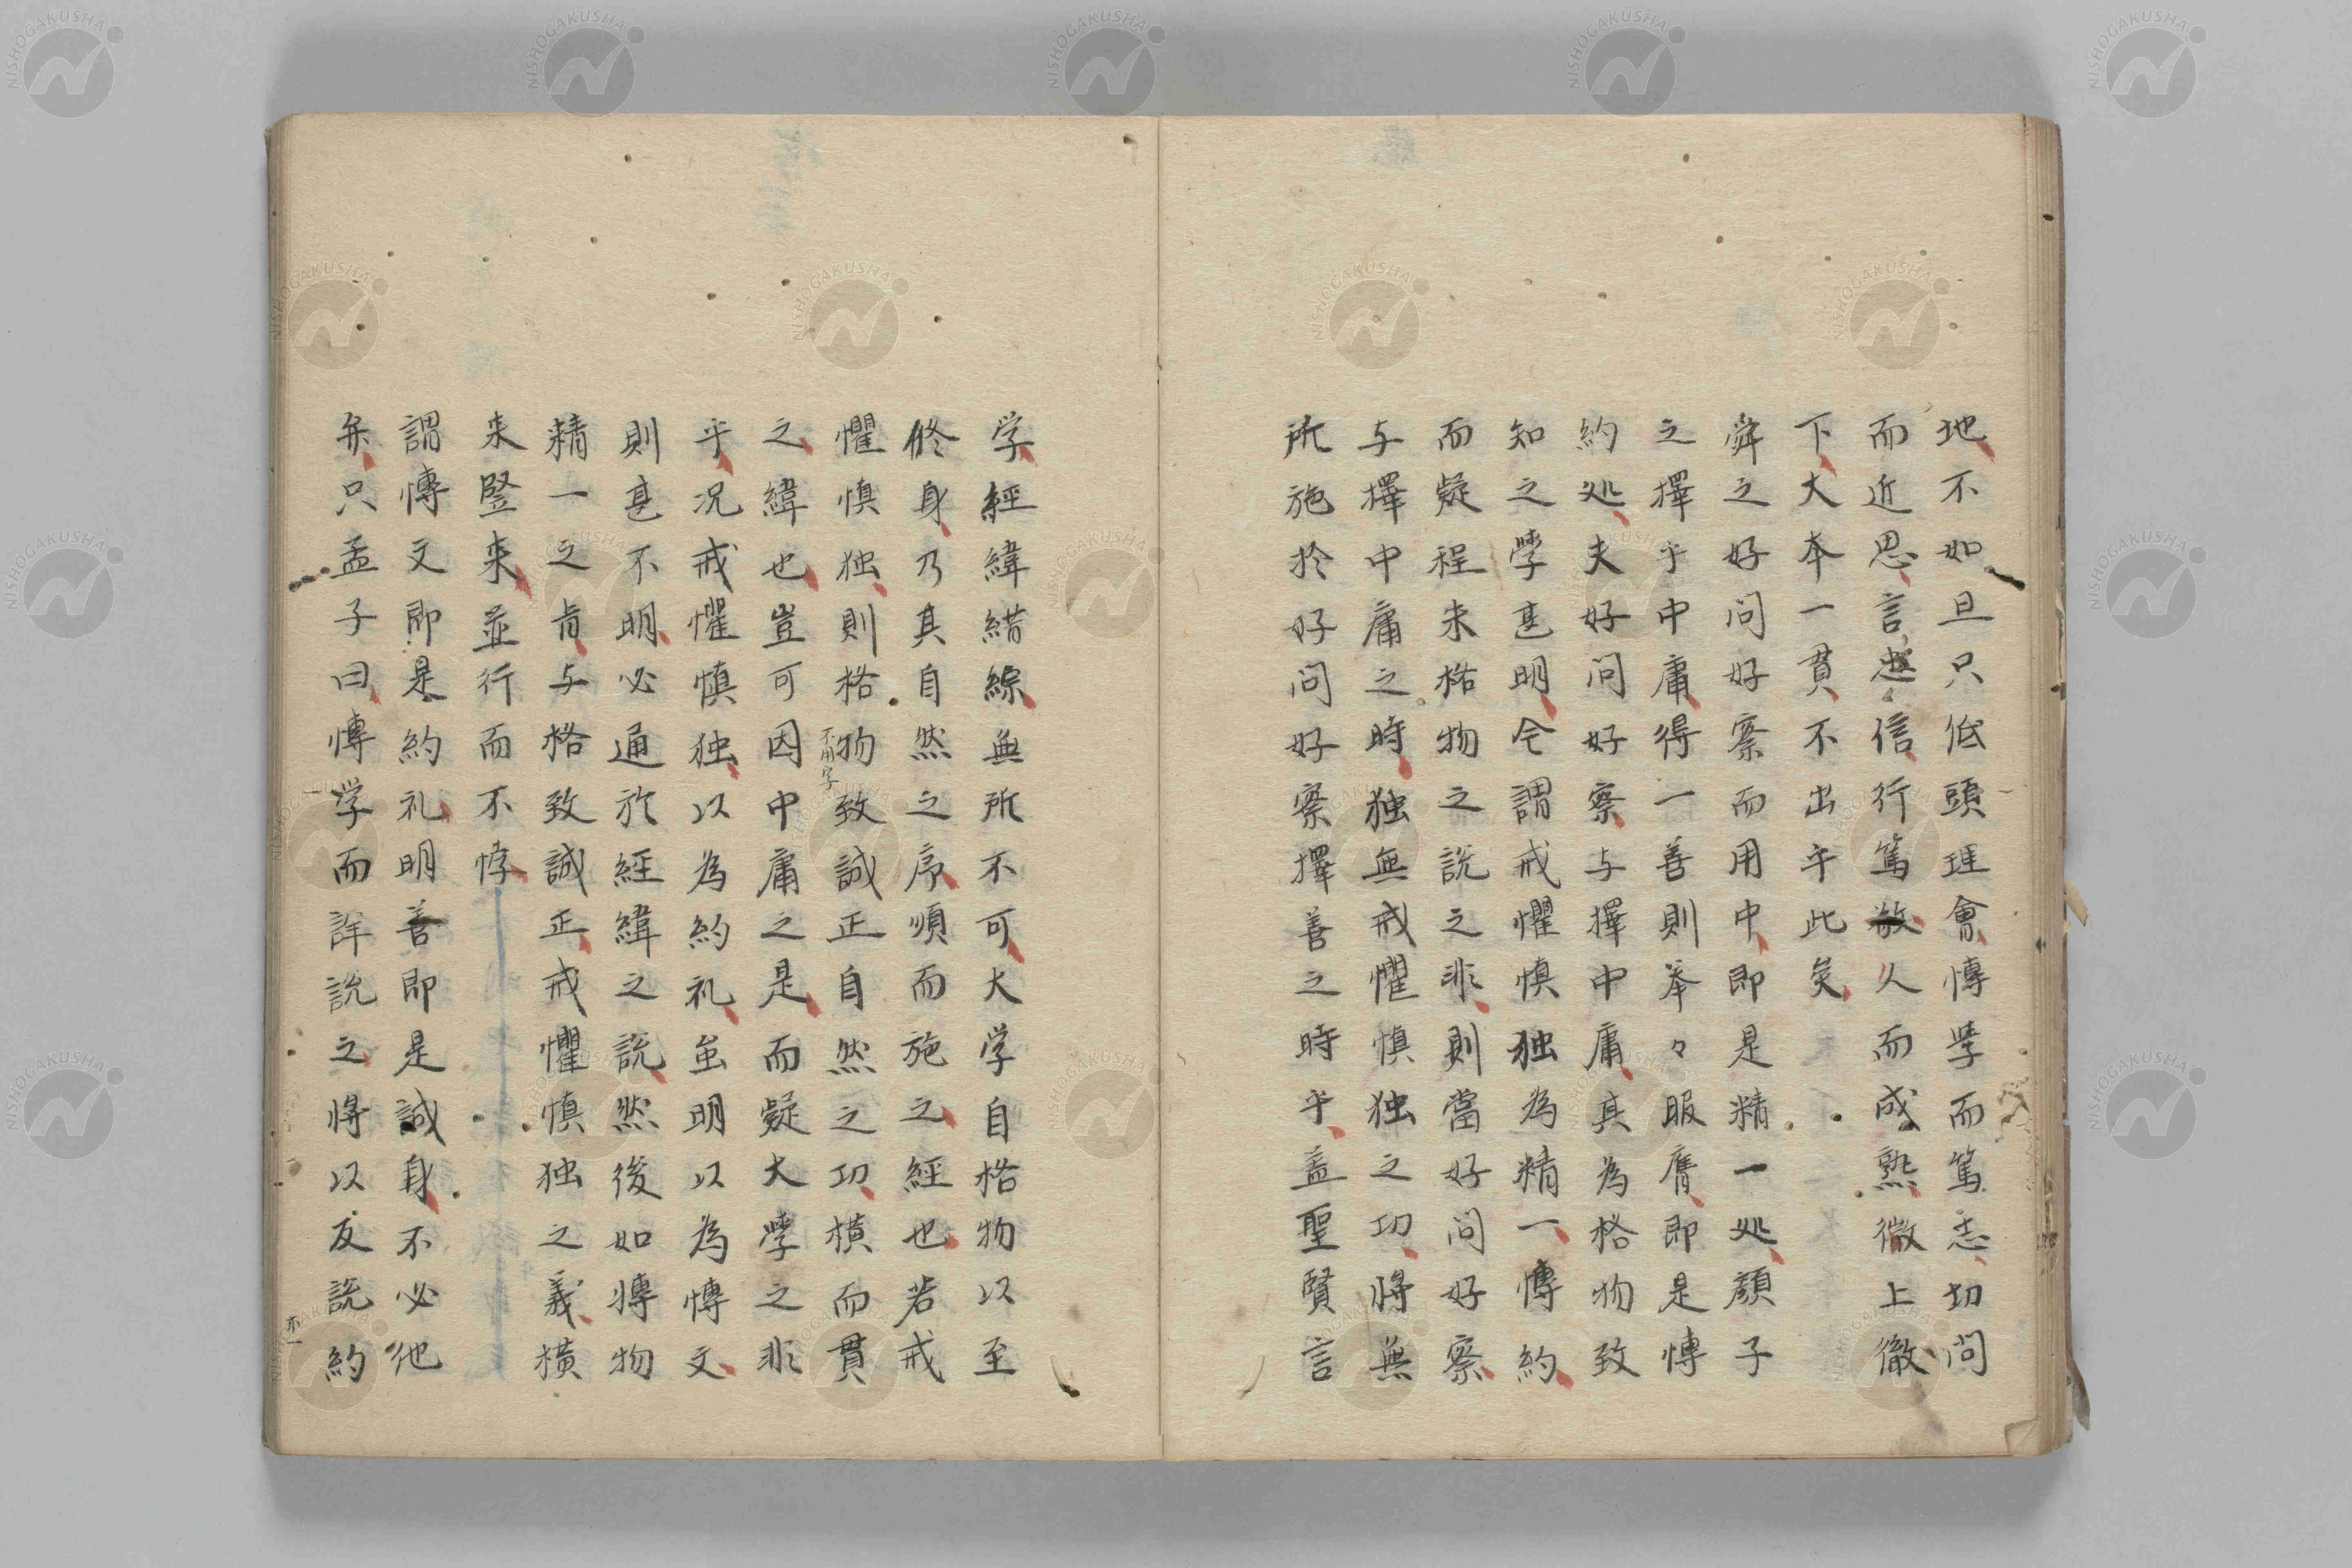 地不如且只低頭理會慱学而篤志切問
而近思言忠信行篤敬人而成熟徹上徹
下大本一貫不出乎此矣
舜之好問好察而用中即是精一処顔子
之擇乎中庸得一善則拳々服膺即是慱
約処夫好問好察与擇中庸其為格物致
知之學甚明今謂戒懼慎独為精一慱約
而疑程朱格物之說之非則當好問好察
与擇中庸之時独無戒懼慎独之功將無
所施於好問好察擇善之時乎盖聖賢言
学經緯錯綜無所不可大学自格物以至
修身乃其自然之序順而施之經也若戒
懼慎独則格物致誠正自然之功橫而貫
不用字
之緯也豈可因中庸之是而疑大學之非
乎况戒懼慎独以為約礼虽明以為慱文
則甚不明必通於經緯之說然後如慱物
精一之肯与格致誠正戒懼慎独之義橫
来竪来並行而不悖
謂慱文即是約礼明善即是誠身不必他
弁只孟子曰慱学而詳說之將以反說約
亦一
NISHOGAKUSHA